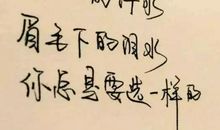 的汗水
眉毛下的泪水
你总是要选一样的